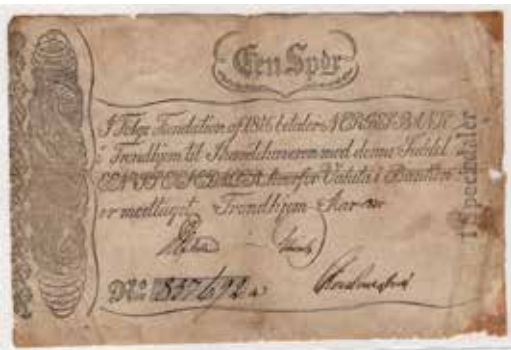 Een Spdr
I Følge Fundation af 1816 betaler NORGES BANK
i Trondhjem til Ihændehaveren mod denne Seddel
EEN SPECIEDALER, hvorfor Valuta i Banken
er modtaget. Trondhjem Aar
No 837692
1 Speciedaler